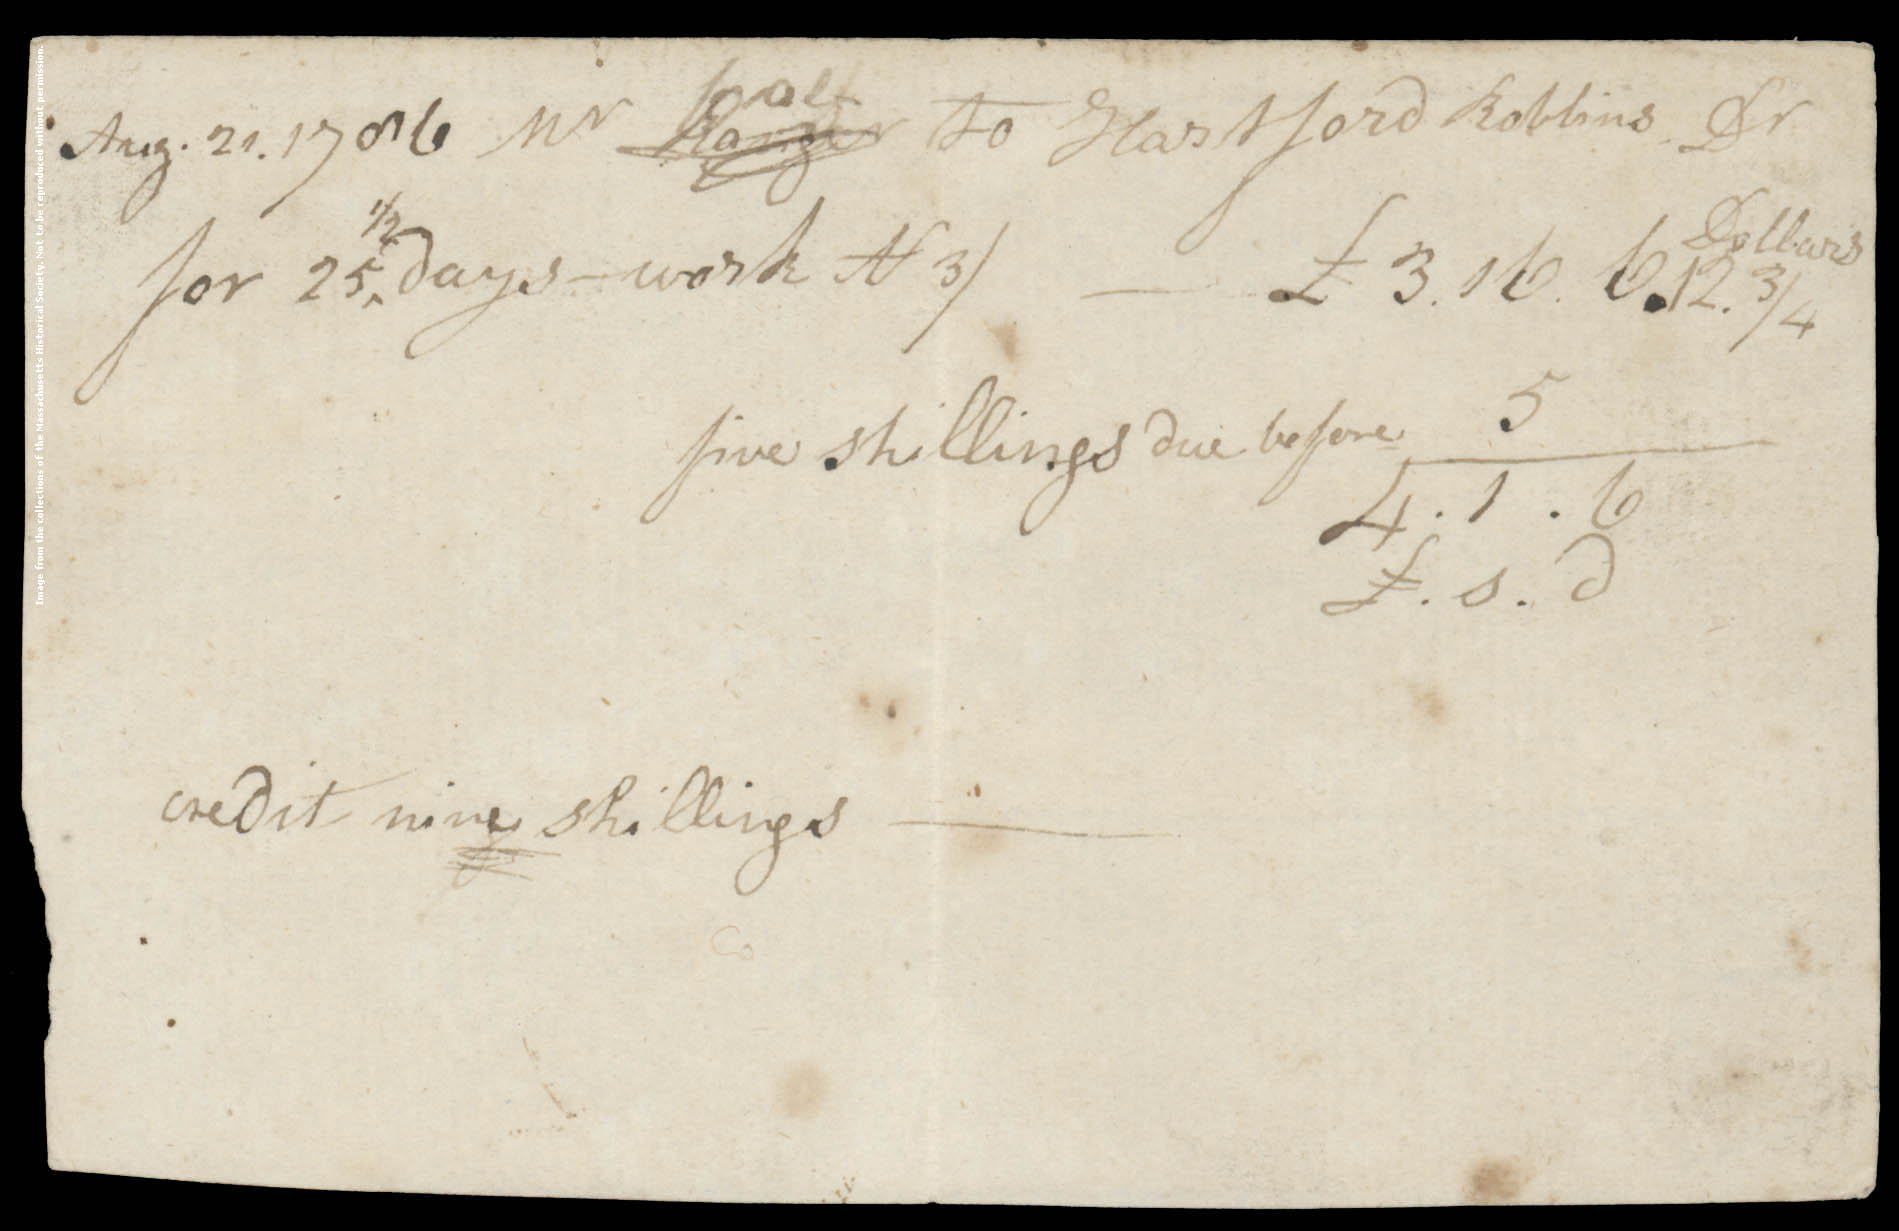 Aug. 21. 1786 Mr to Hartford Robbins Dr
for 25 1/2 days-work At 3/ — £ 3. 16. 6. Dollars 12. 3/4
five shillings due before 5
4 . 1 . 6
£ . s . d
credit nine shillings —
Co
Image from the collections of the Massachusetts Historical Society. Not to be reproduced without permission.